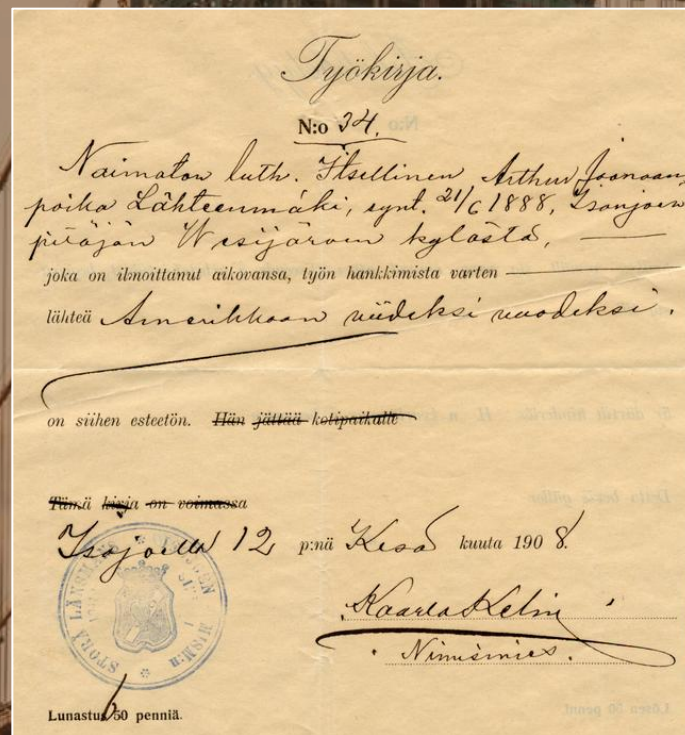 Työkirja.
N:o 34.
Naimaton luth. Itsellinen Arthur Joonaan
poika Lähteenmäki, synt. 21/6 1888, Isonjoen
pitäjän Wesijärven kylästä,
joka on ilmoittanut aikovansa, työn hankkimista varten
lähteä Amerikkaan viideksi vuodeksi.
on siihen esteetön. Hän jättää kotipaikalle
Tämä kirja on voimassa
Isojoella 12 p:nä Kesä kuuta 1908.
STORÅ LÄNSMANS
Kaarlo
Nimismies.
Lunastus 50 penniä.